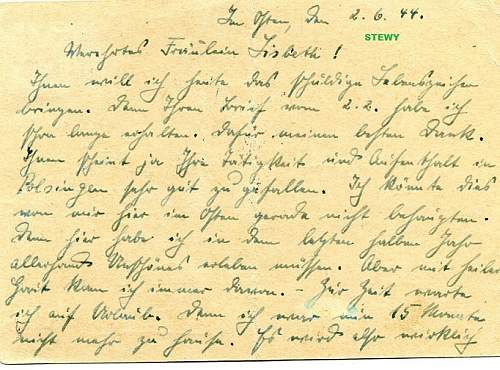 Im Osten, den 2.6.44.
STEWY
Verehrtes Fräulein Lisbeth!
Ihnen will ich heute das schuldige Lebenszeichen
bringen. Denn Ihren Brief vom 2.2. habe ich
schon lange erhalten. Dafür meinen besten Dank.
Ihnen scheint ja Ihre Tätigkeit und Aufenthalt in
Polsingen sehr gut zu gefallen. Ich könnte dies
von mir hier im Osten gerade nicht behaupten.
Denn hier habe ich in dem letzten halben Jahr
allerhand Unschönes erleben müssen. Aber mit heiler
Haut kam ich immer davon. – Zur Zeit warte
ich auf Urlaub. Denn ich war nun 15 Monate
nicht mehr zu Hause. Es wird also wirklich